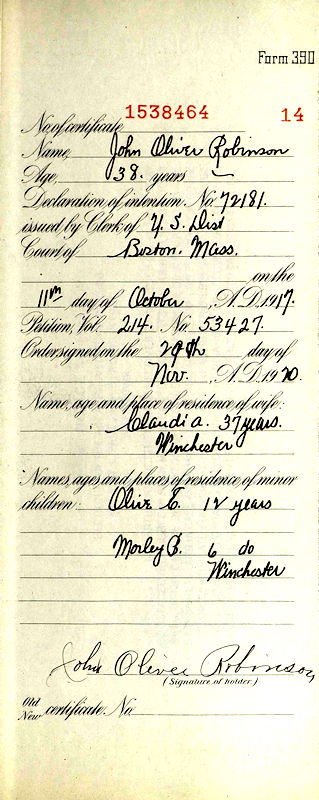 Form 390
1538464 14
No. of certificate
Name, John Oliver Robinson
Age, 38. years
Declaration of intention. No. 72181.
issued by Clerk of U. S. Dist
Court of Boston. Mass.
on the
11th day of October, A.D. 1917.
Petition, Vol. 214. No. 53427.
Order signed on the 29th day of
Nov., A.D. 1920.
Name, age, and place of residence of wife:
Claudia. 37 years.
Winchester
Names, ages and places of residence of minor
children: Olive E. 12 years
Morley B. 6 do
Winchester
John Oliver Robinson
(Signature of holder.)
Old
New certificate No.